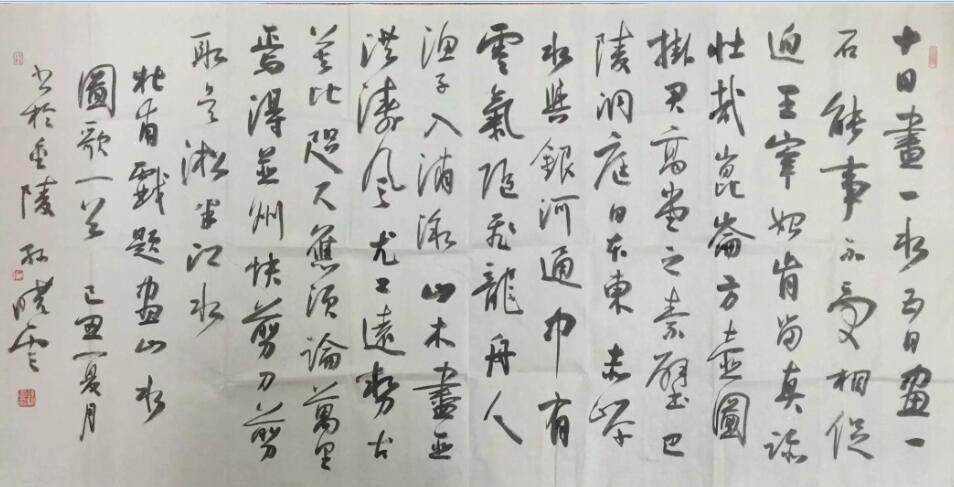 十日畫一水五日畫一
石能事不受相促
迫王宰始肯留真跡
壯哉崑崙方壺圖
掛君高堂之素壁巴
陵洞庭日本東赤岸
水與銀河通中有
雲氣隨飛龍舟人
漁子入浦漵山木盡亞
洪濤風尤工遠勢古
莫比咫尺應須論萬里
焉得並州快剪刀剪
取吳淞半江水
杜甫戲題畫山水
圖歌一首 己丑夏月
書於金陵 孫曉雲